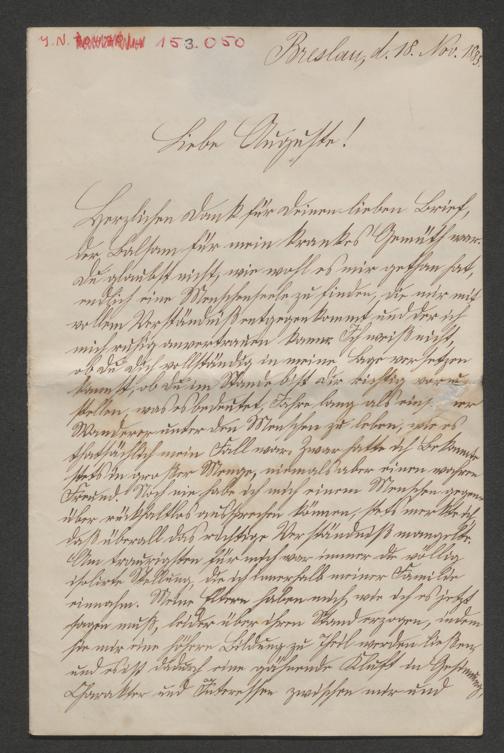 J.N. 153.050
Breslau, d. 18. Nov. 189
Liebe Auguste!
Herzlichen Dank für Deinen lieben Brief,
der Balsam für mein krankes Gemüth war.
Du glaubst nicht, wie wohl es mir gethan hat,
endlich eine Menschenseele zu finden, die mir mit
vollem Verständniß entgegen kommt und der ich
mich ruhig anvertrauen kann. Ich weiß nicht,
ob Du Dich vollständig in meine Lage versetzen
kannst, ob Du im Stande bist Dir richtig vorzu
stellen, was es bedeutet, Jahre lang als
Wanderer unter den Menschen zu leben, wie es
thatsächlich mein Fall war. Zwar hatte ich Bekannte
stets in großer Menge, niemals aber einen wahren
Freund. Noch nie habe ich mich einem Menschen gegen
über rückhaltlos aussprechen können, stets merkte ich
daß überall das richtige Verständniß mangelte.
Am traurigsten für mich war immer die völlig
isolirte Stellung, die ich innerhalb meiner Familie
einnahm. Meine Eltern haben mich, wie ich es jetzt
sagen muß, leider über ihren Stand erzogen, indem
sie mir eine höhere Bildung zu Theil werden ließen
und es ist dadurch eine gähnende Kluft in Gesinnung,
Charakter und Interessen zwischen mir und